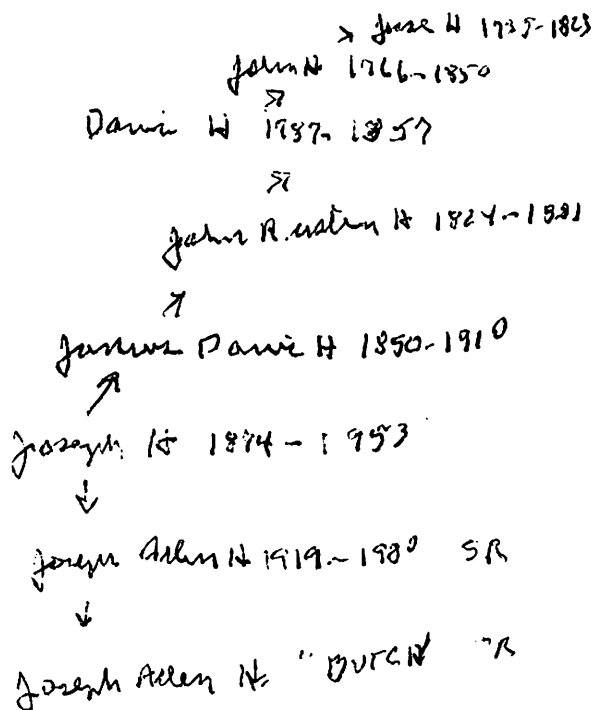 Jesse H 1735-1823
John H 1766-1850
Davie H 1787-1857
John R. H 1824-1881
Joshua Davie H 1850-1910
Joseph H 1874-1953
Joseph Allen H 1919-1980 SR
Joseph Allen H. "BUTCH" JR